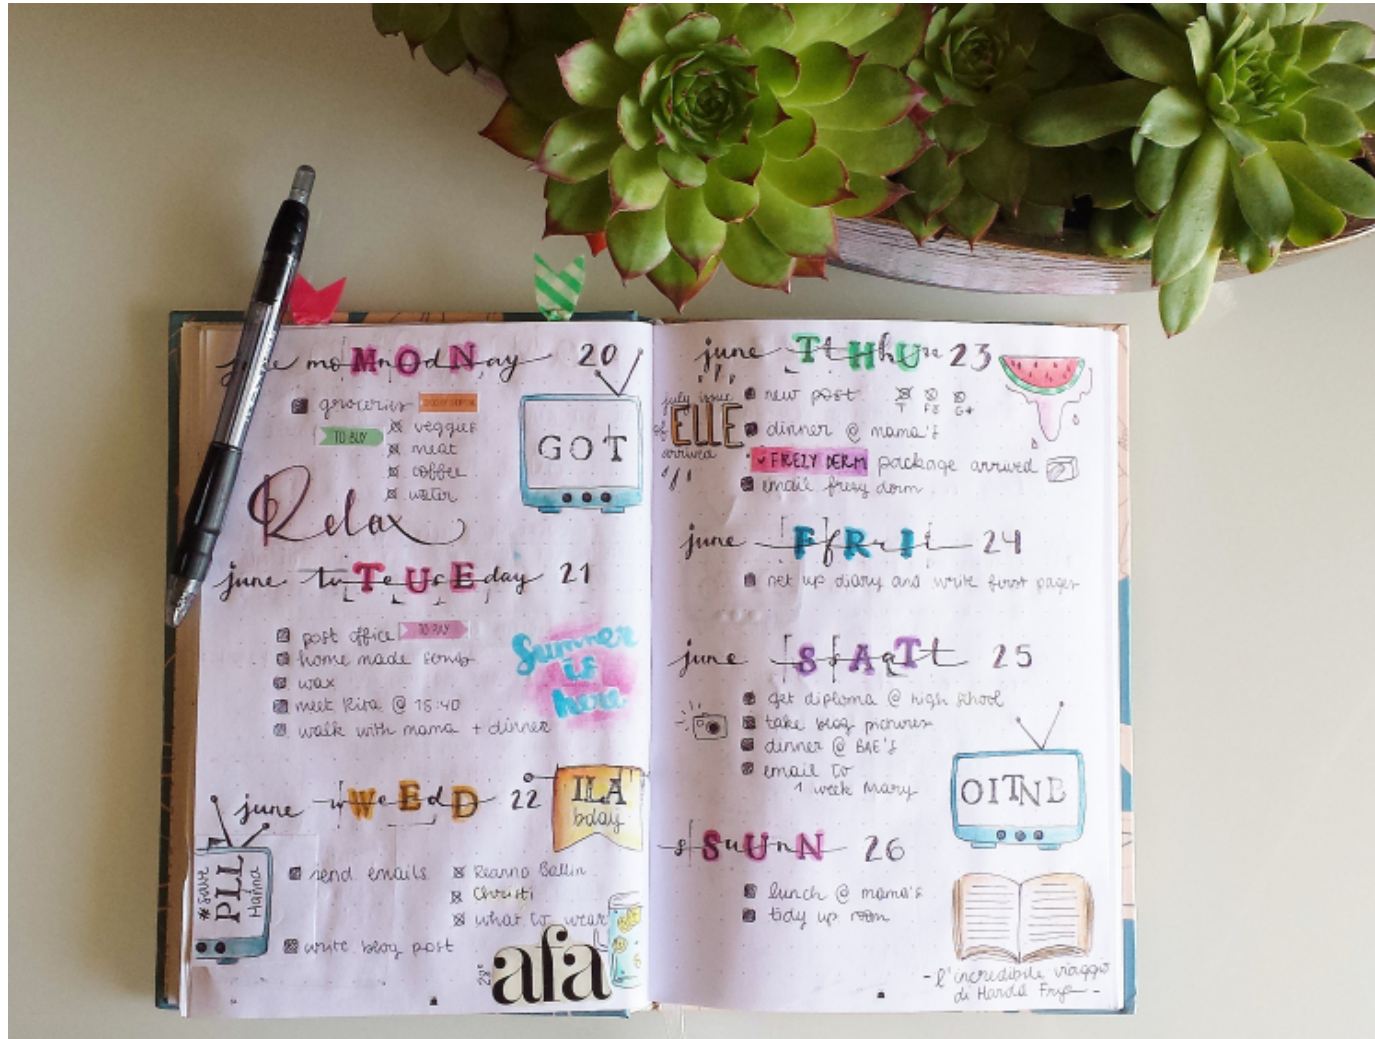 june MONday 20
groceries
TO BUY
veggies
meat
coffee
water
GOT
Relax
june TUEday 21
post office TO BUY
home made scrub
wax
meet Rita @ 15:40
walk with mama + dinner
Summer
is
here
june WED 22
ILA
bday
#save
PLL
Hanna
send emails
Christi
what to wear
write blog post
28°
afa
june THU 23
july issue
of ELLE
arrived
new post
T FB G+
dinner @ mama's
FREZY DERM package arrived
email frezy derm
june FRI 24
set up diary and write first pages
june SAT 25
get diploma @ high school
take blog pictures
dinner @ BAE's
email to
1 week Mary
OITNB
SUN 26
lunch @ mama's
tidy up room
- l'incredibile viaggio
di Harold Fry -